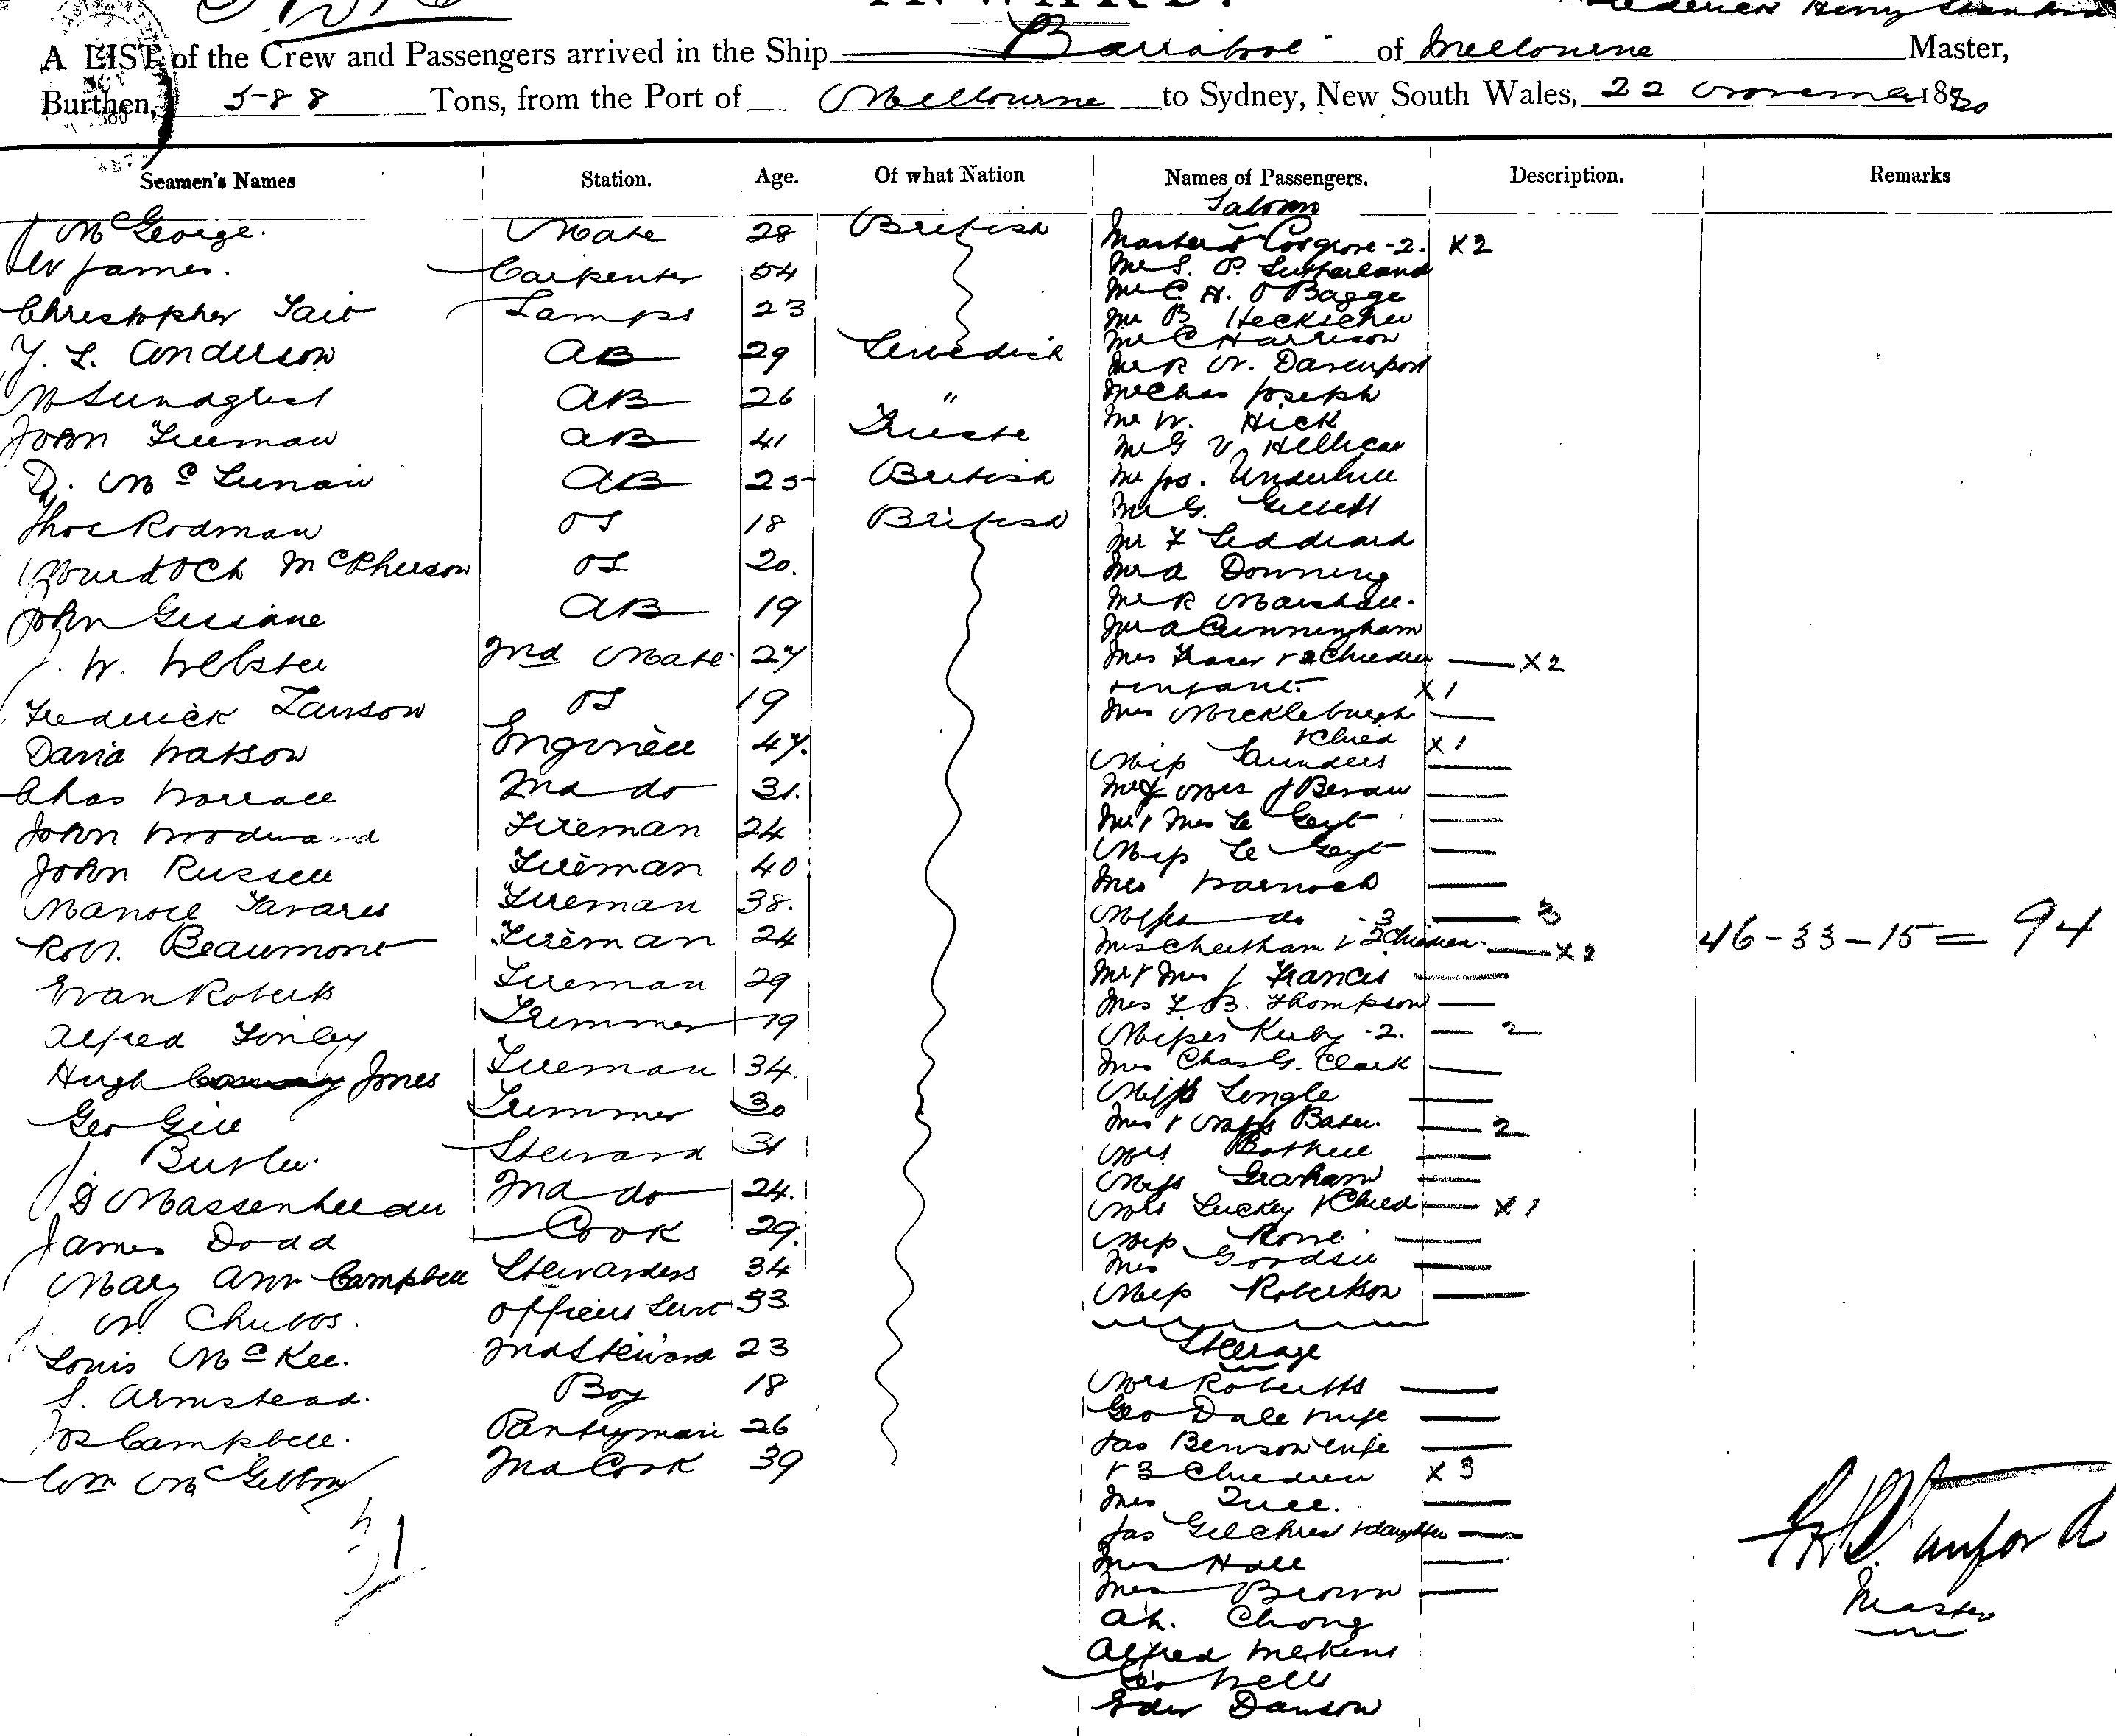 INWARD.
Frederick Henry Stanford
A LIST of the Crew and Passengers arrived in the Ship Barrabool of Melbourne Master,
Burthen, 588 Tons, from the Port of Melbourne to Sydney, New South Wales, 22 November 1880
Seamen's Names Station. Age. Of what Nation Names of Passengers. Description. Remarks
Saloon
McGeorge. Mate 28 British
James. Carpenter 54
Christopher Tait Lamps 23
J. L. Anderson AB 29 Swedish
M Lundqrist AB 26 "
John Freeman AB 41 Trieste
D. Mc AB 25 British
Thos Rodman OS 18 British
Murdoch McPherson OS 20.
John AB 19
J. W. Webster 2nd Mate 27
Frederick OS 19
David Watson Engineer 47.
Chas Wallace 2nd do 31.
John Woodward Fireman 24
John Russell Fireman 40
Manoel Tavares Fireman 38.
Robt. Beaumont Fireman 24
Evan Roberts Fireman 29
Alfred Finley Trimmer 19
Hugh Jones Fireman 34.
Geo Gill Trimmer 30
J. Butler. Steward 31
D 2nd do 24.
James Dodd Cook 29.
Mary Ann Campbell Stewardess 34
W. Chubbs. Officers Servt 33.
Louis McKee. 2nd Steward 23
S. Armstead. Boy 18
Jos Campbell. Pantryman 26
Wm McGibbon 2nd Cook 39
31
Masters Cosgrove -2. X2
Mr S. P. Sutherland
Mr C. H. O Bagge
Mr B Heckscher
Mr C Harrison
Mr R W. Davenport
Mr Chas Joseph
Mr W. Hick
Mr G V. Hellicar
Mr Jos. Underhill
Mr G. Gillett
Mr F Leddeard
Mr A Downing
Mr R Marshall.
Mr A Cunningham
Mrs Fraser & 2 Children X2
& infant X1
Mrs Micklebugh
& Child X1
Miss Saunders
Mr & Mrs J Bevan
Mr & Mrs Le Geyt
Miss Le Geyt
Mrs Warnock
Misses do -3 3
Mrs Cheetham & 2 Children X2
Mr & Mrs J Francis
Mrs F. B. Thompson
Misses Kirby -2. 2
Mrs Chas G. Clark
Miss Lingle
Mrs & Miss Baker. 2
Mrs Bothell
Miss Graham
Mrs Luckey & Child X1
Miss Rowe
Mrs Goodsir
Miss Robertson
46-33-15= 94
Steerage
Mrs Roberts
Geo Dale & wife
Jas Benson wife
& 3 Children X3
Mrs
Jas Gilchrist & daughter
Mrs Hall
Mrs Brown
Ah. Chong
Alfred Mekins
Geo Wells
Edw Dawson
F H Stanford
Master